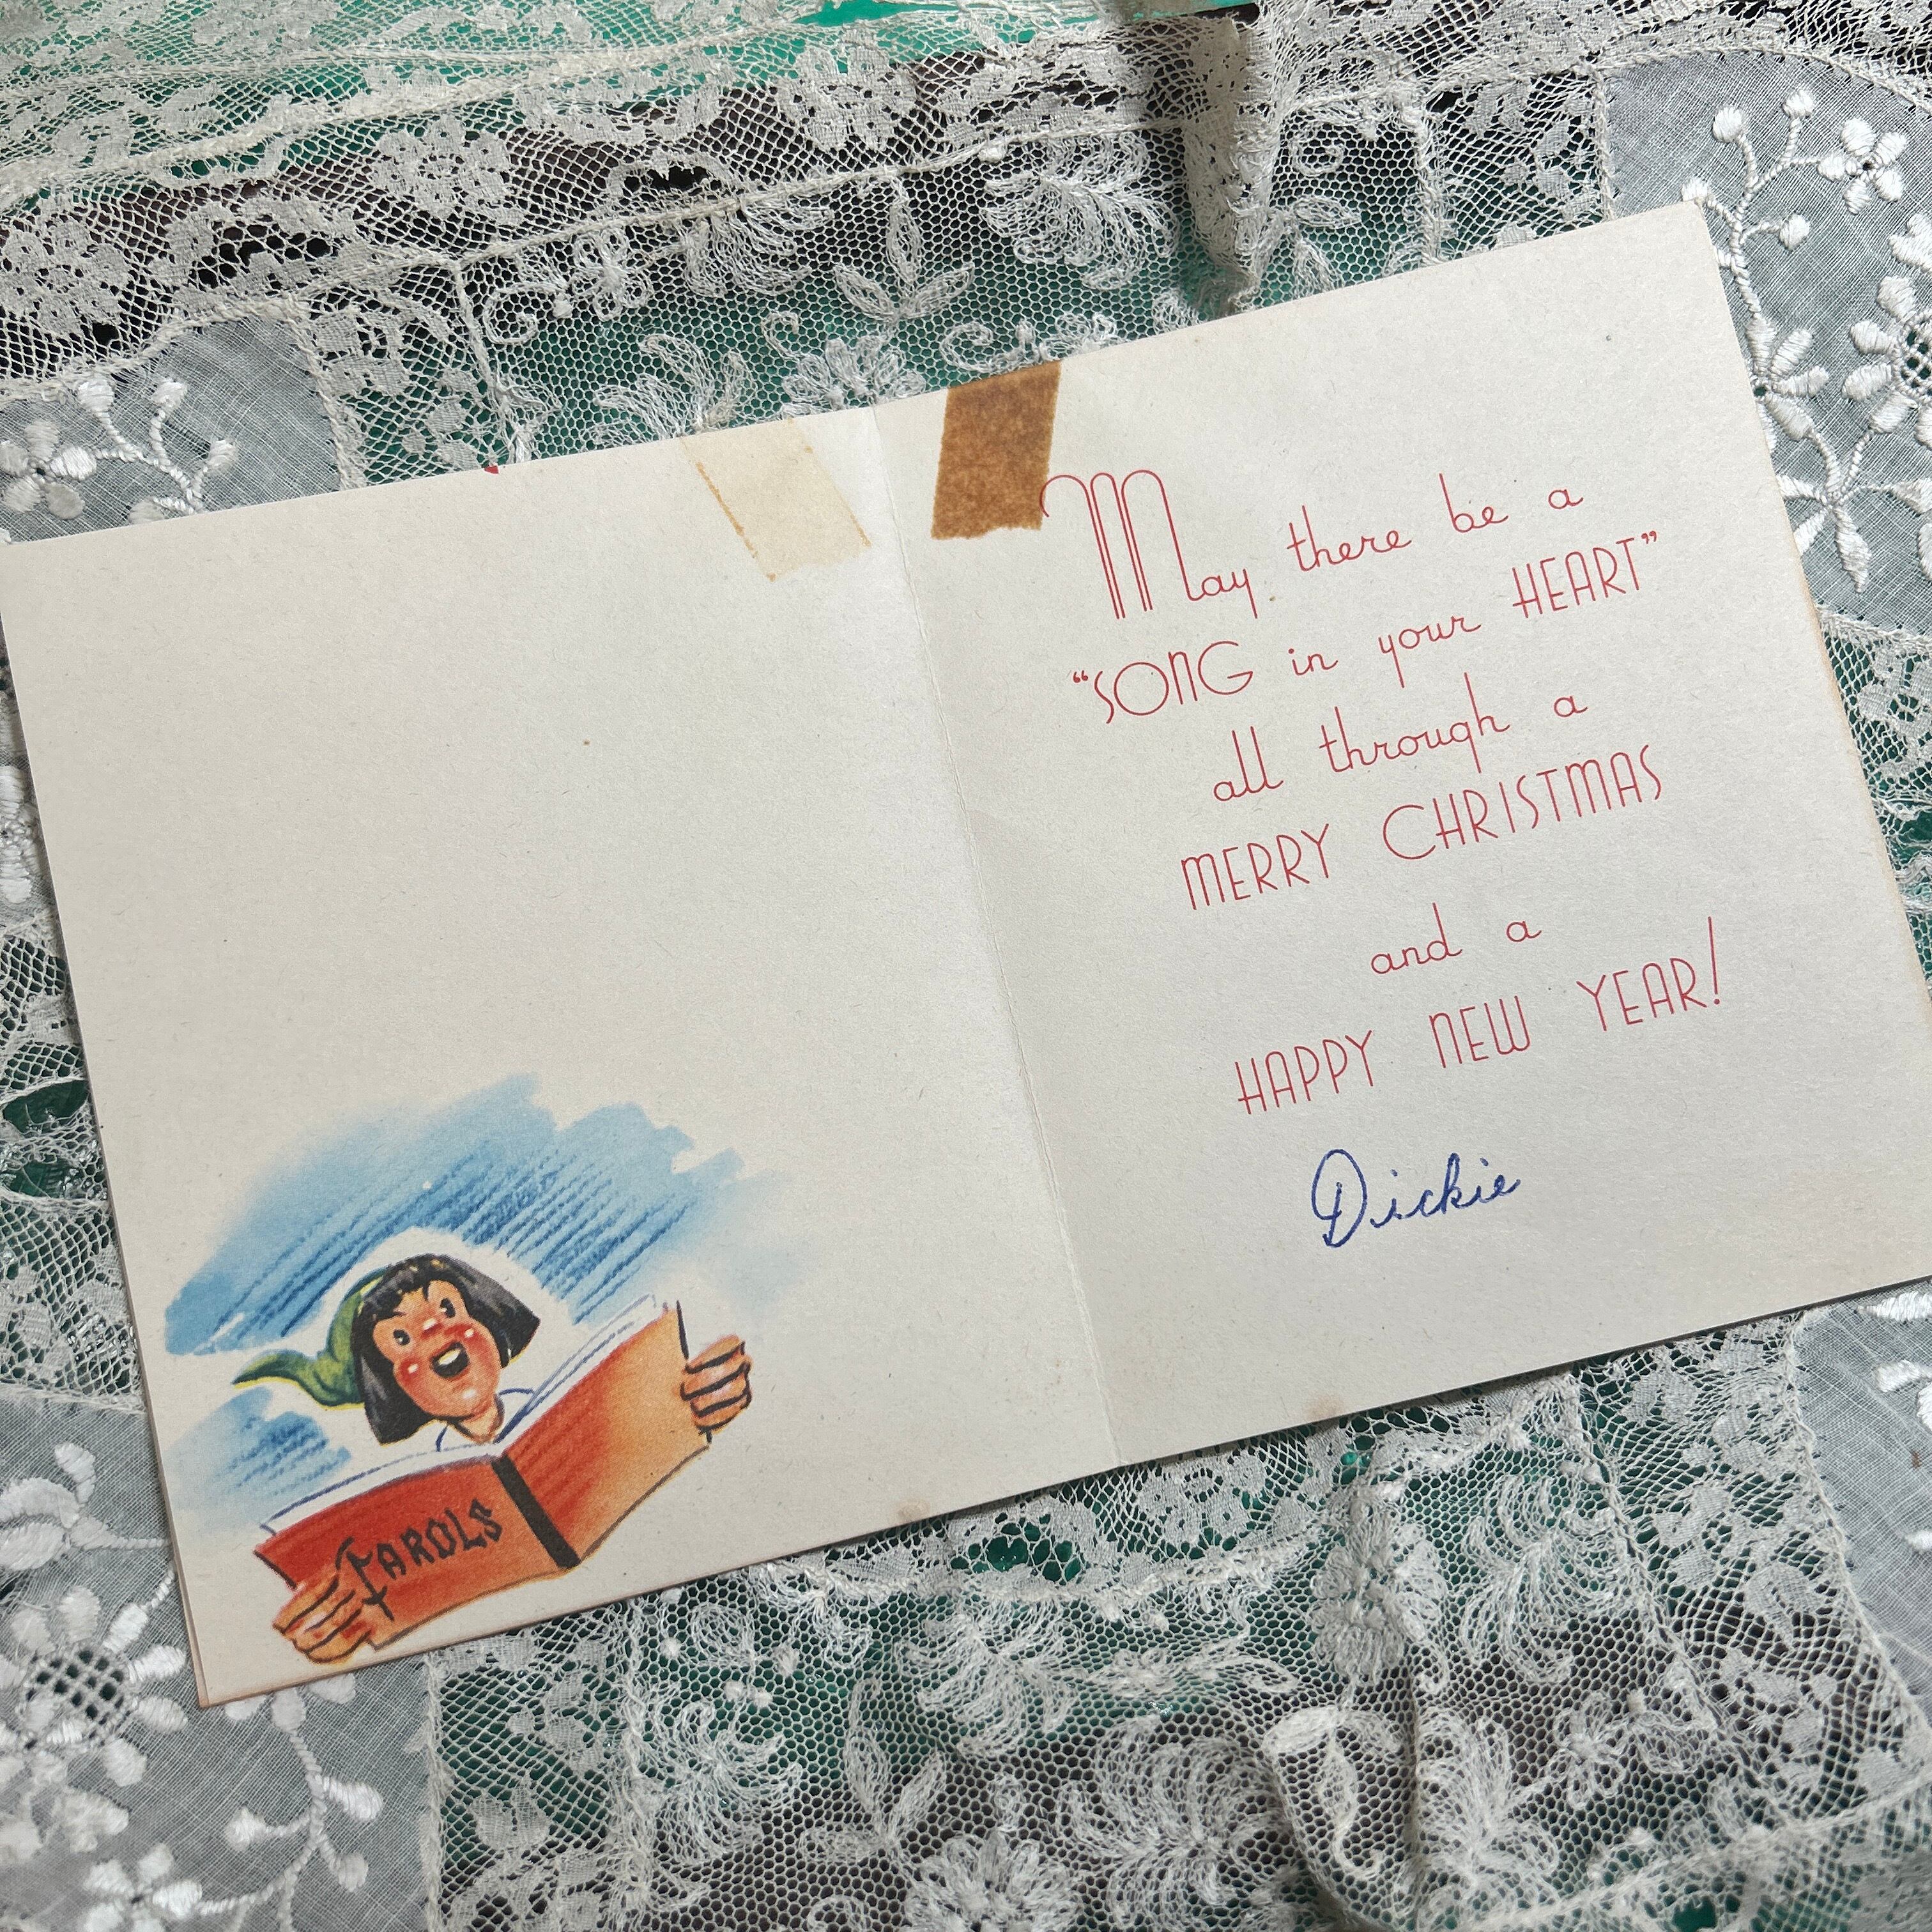 May there be a
“SONG in your HEART”
all through a
MERRY CHRISTMAS
and a
HAPPY NEW YEAR!
Dickie
FAROLS